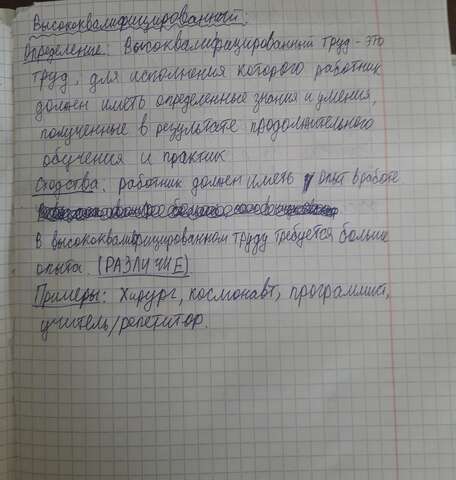 Высококвалифицированный.
Определение: Высококвалифицированный труд - это
труд, для исполнения которого работник
должен иметь определенные знания и умения,
полученные в результате продолжительного
обучения и практик
Сходства: работник должен иметь опыт в работе
В высококвалифицированном труду требуется больше
опыта. (РАЗЛИЧИЕ)
Примеры: Хирург, космонавт, программист,
учитель/репетитор.